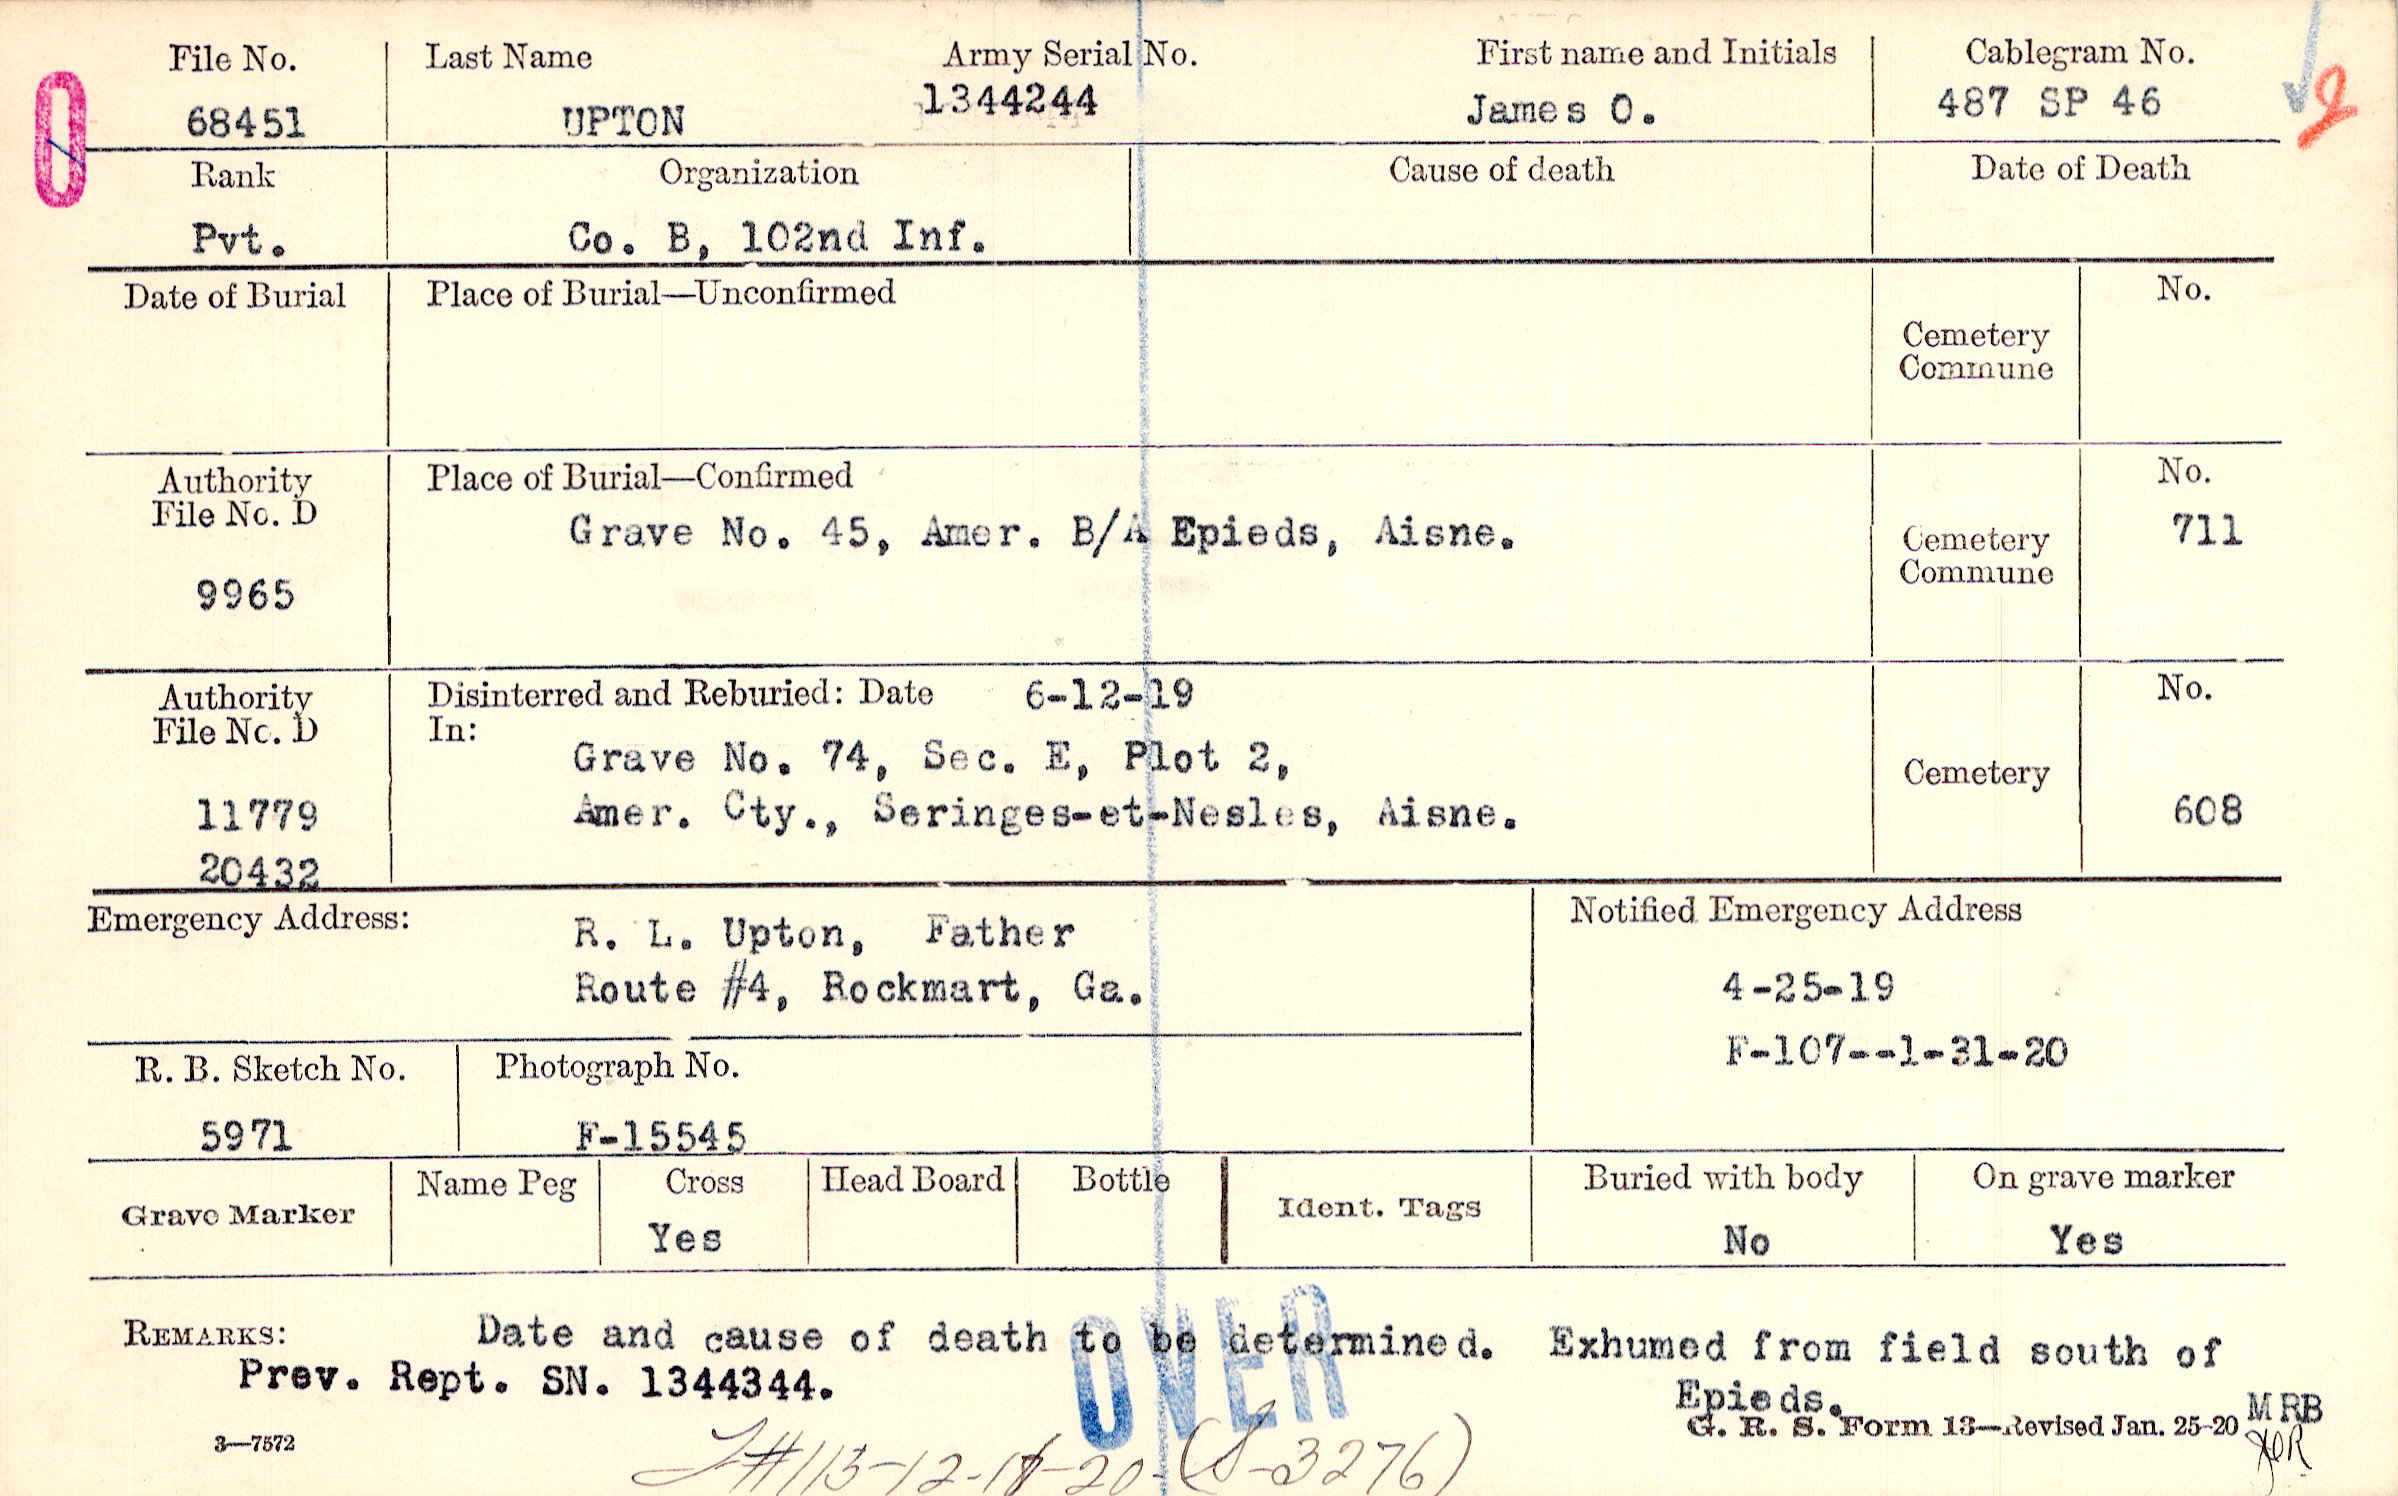 File No. Last Name Army Serial No. First name and Initials Cablegram No.
68451 UPTON 1344244 James O. 487 SP 46
Rank Organization Cause of death Date of Death
Pvt. Co. B, 102nd Inf.
Date of Burial Place of Burial—Unconfirmed No.
Cemetery
Commune
Authority Place of Burial—Confirmed No.
File No. D
Grave No. 45, Amer. B/A Epieds, Aisne. 711
Cemetery
Commune
9965
Authority Disinterred and Reburied: Date 6-12-19 No.
File No. D In:
Grave No. 74, Sec. E, Plot 2,
Cemetery
11779 Amer. Cty., Seringes-et-Nesles, Aisne. 608
20432
Emergency Address: R. L. Upton, Father Notified Emergency Address
Route #4, Rockmart, Ga. 4-25-19
F-107--1-31-20
R. B. Sketch No. Photograph No.
5971 F-15545
Grave Marker Name Peg Cross Head Board Bottle Ident. Tags Buried with body On grave marker
Yes No Yes
REMARKS: Date and cause of death to be determined. Exhumed from field south of
Prev. Rept. SN. 1344344. Epieds.
OVER
MRB
G. R. S. Form 13—Revised Jan. 25-20
3—7572
(S-3276)